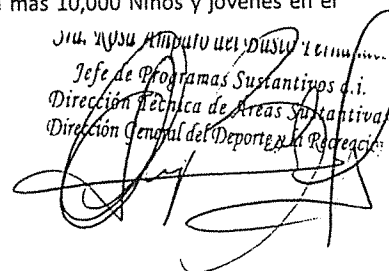 mas 10,000 Niños y jóvenes en el
Rosa Amparo del Busto
Jefe de Programas Sustantivos a.i.
Dirección Técnica de Areas Sustantivas
Dirección General del Deporte y la Recreación